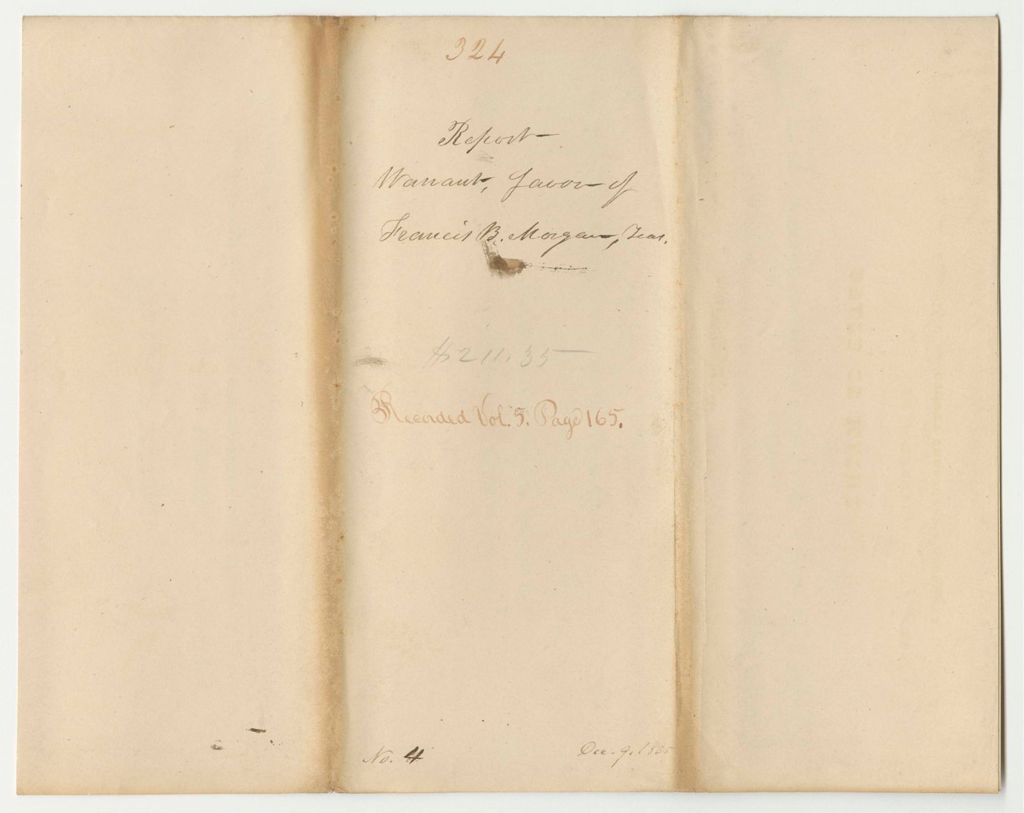 324
Report
Warrant, favor of
Francis B. Morgan, Treas.
$211.35
Recorded Vol. 5. Page 165.
No. 4
Dec. 9. 185